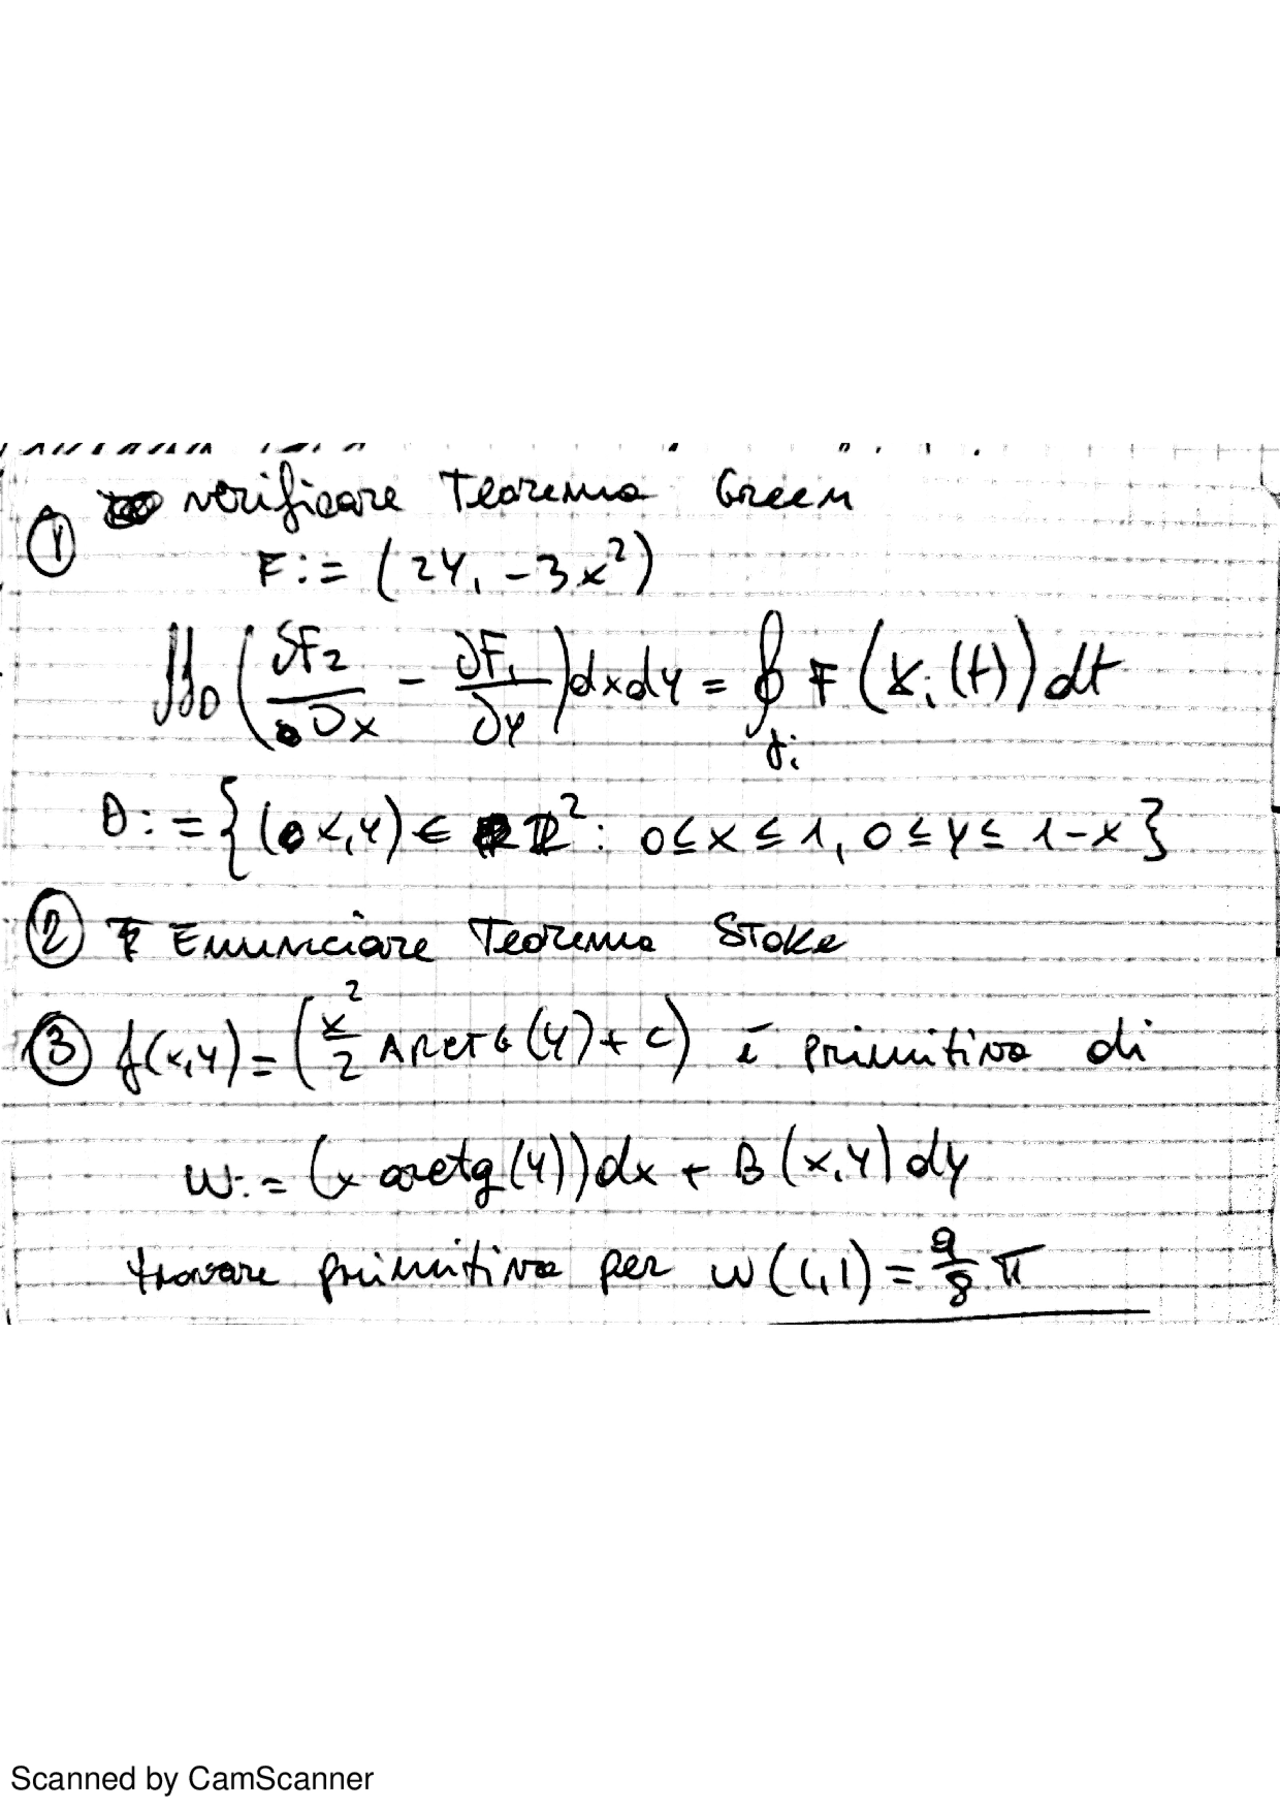 ① verificare Teorema Green
F:= (2y, -3x²)
∬_D (∂F₂/∂x - ∂F₁/∂y) dxdy = ∮_γᵢ F(γᵢ(t)) dt
D:= {(x,y) ∈ ℝ²: 0≤x≤1, 0≤y≤1-x}
② Enunciare Teorema Stoke
③ f(x,y) = (x²/2 ARCTG(y) + c) è primitiva di
w:= (x arctg(y))dx + B(x,y)dy
trovare primitiva per w(1,1) = 9/8 π
Scanned by CamScanner